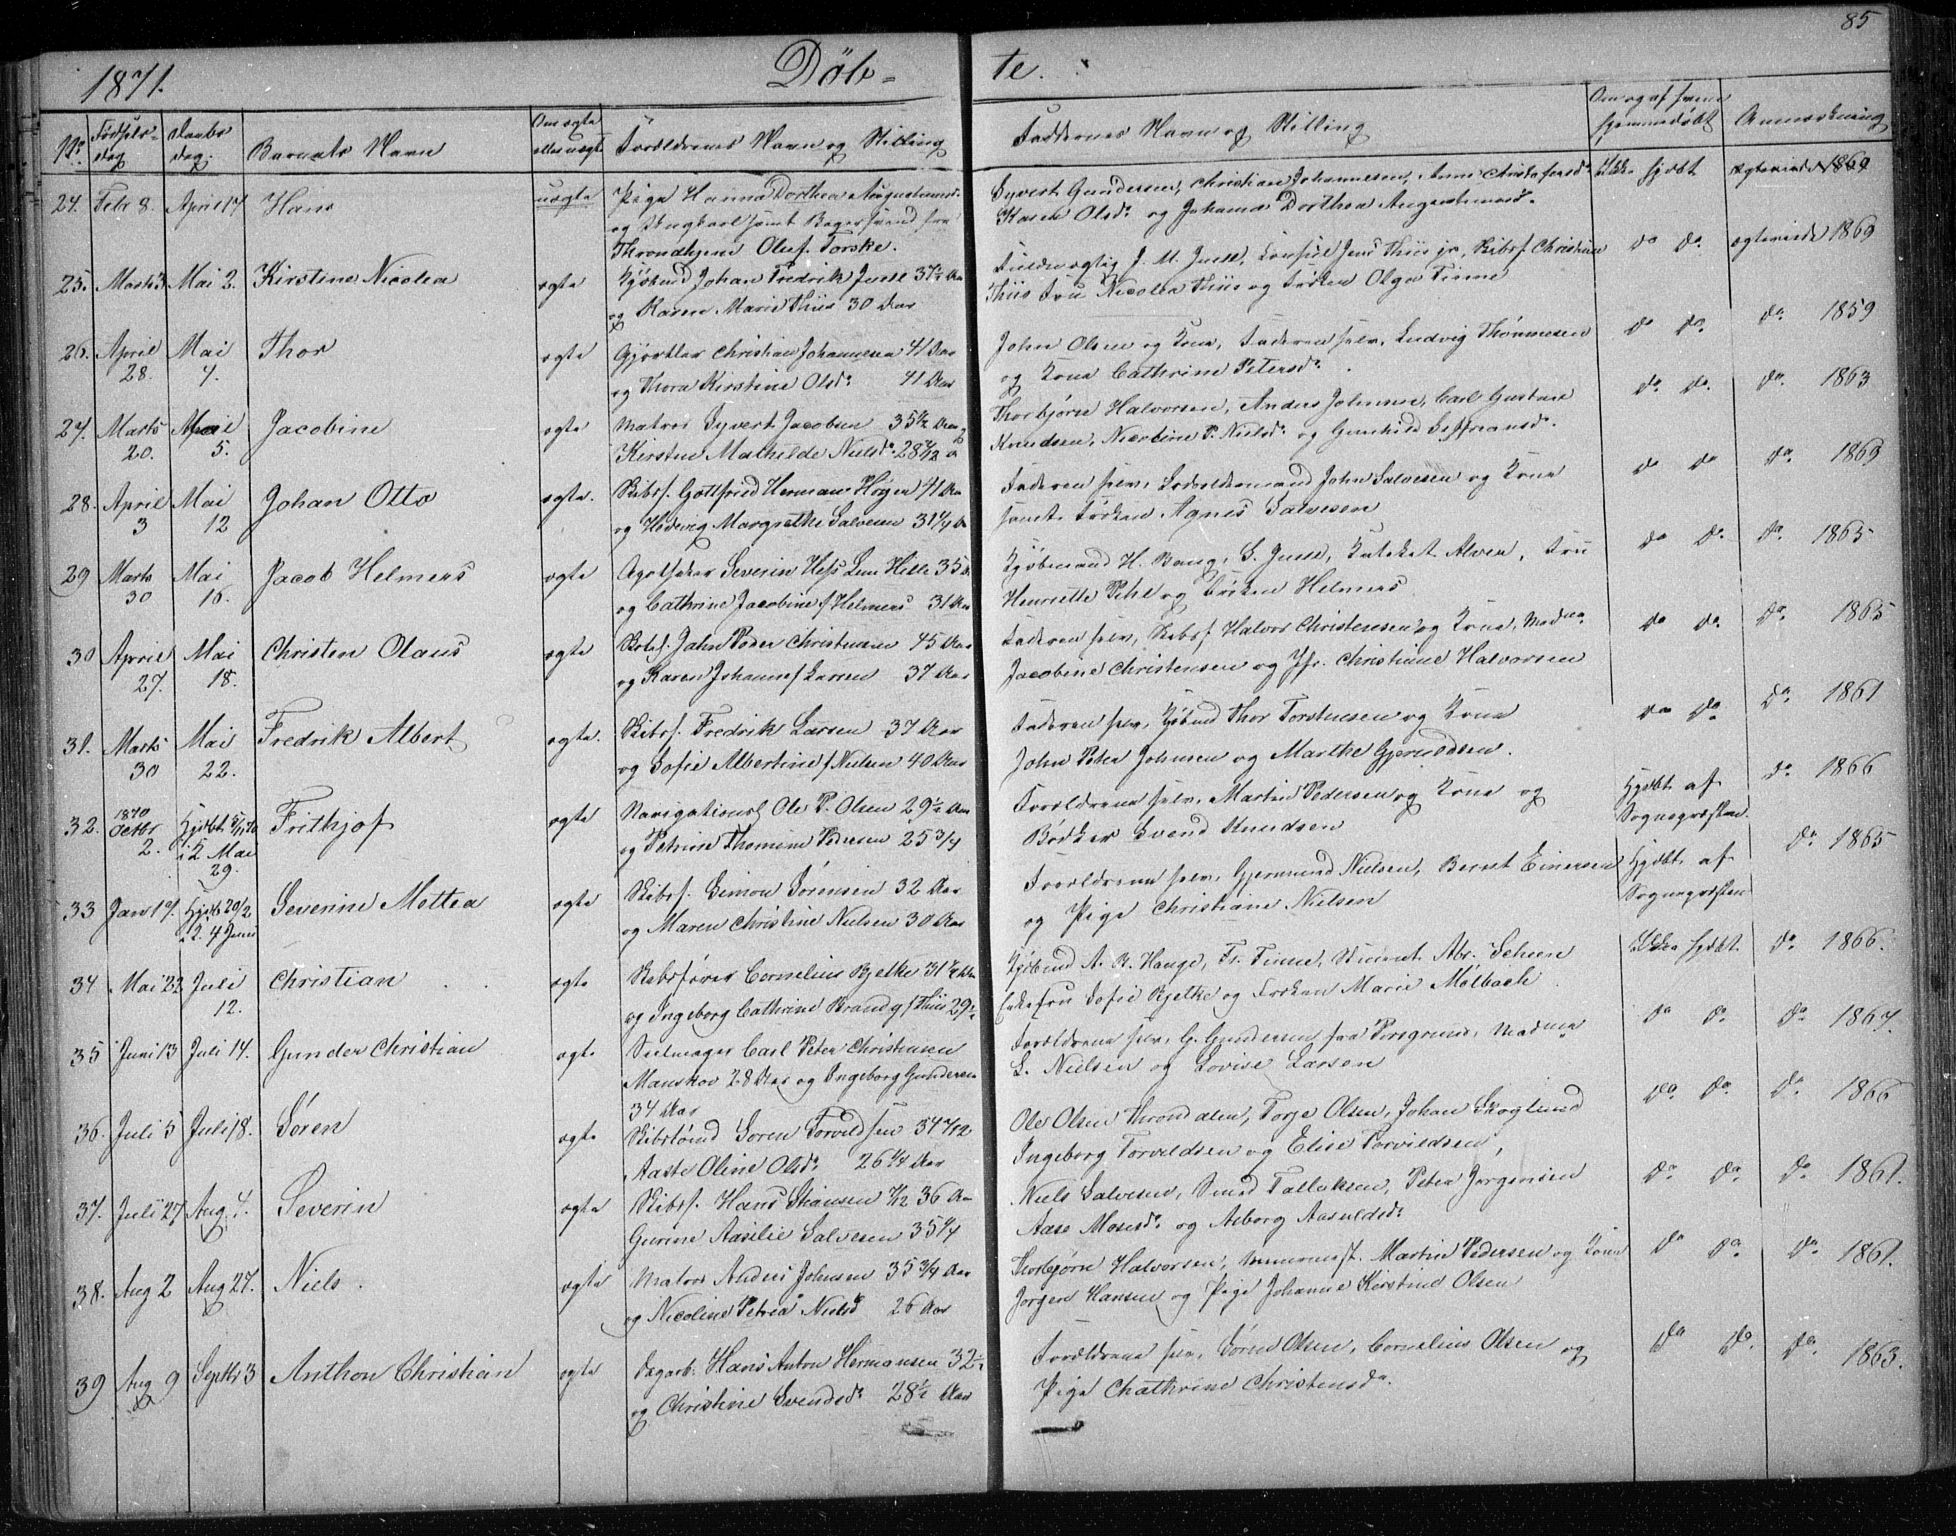 85
1871. Døb-te.
No Fødsels-dag Daabs dag. Barnets Navn Om ægte eller uægte Forældrenes Navn og Stilling Faddernes Navn og Stilling Om og af hvem hjemmedøbt Anmærkning
24. Febr 8. April 17 Hans uægte Pige Hanna Dorthea Augustinusd.
og Ungkarl samt Bagersvend fra
Throndhjem Oluf Torske.
Syvert Gundersen, Christian Johannesen, Anne Christofersd. Ikke hjdbt 1869
Karen Olsd. og Johanna Dorthea Augustinusd.
25. Marts 3 Mai 2. Kirstine Nicolea ægte Kjøbmd Johan Fredrik Jusse 37½ Aar
og Karen Marie Thiis 30 Aar
J. M. Jusse, Consul Jens Thiis jr, Skibsf. Christian do do. 1869
Thiis Fru Nicolea Thiis og Frøken Olga Finne
26. April 28. Mai 4. Thor ægte Gjørtler Christian Johannesen 41 Aar
og Thora Kirstine Olsd. 41 Aar
John Olsen og Kone, Faderen selv, Ludvig Thommesen do do. do. 1859
og Kone Cathrine Petersd.
27. Marts 20. Mai 5. Jacobine ægte Matros Syvert Jacobsen 35½ Aar og
Kirstine Mathilde Nielsd. 28
Thorbjørn Halvorsen, Anders Johnsen, Carl Gustav do. do. do. 1863
Knudsen, Nicoline P. Nielsd. og Gunhild
28. April 3 Mai 12 Johan Otto ægte. Skibsf. Gottfried Herman Høyer 41 Aar
og Hedevig Margrethe Salvesen 31¼ Aar
Faderen selv, John Salvesen og Kone do do do. 1869
samt Frøken Agnes Salvesen
29 Marts 30 Mai 16. Jacob Helmers ægte Apotheker Severin Hess Lem Hille 35
og Cathrine Jacobine f Helmers 31 Aar
Kjøbmand H. Bang, S. Jusse, Alver, Fru do do. do. 1865
Henriette Pihl og Frøken Helmers
30 April 27. Mai 18. Christen Olaus ægte Skibsf. John Peder Christensen 45 Aar
og Karen Johanne f Larsen 37 Aar
Faderen selv, Skibsf. Halvor Christensen og Kone, Madme do do. do 1865
Jacobine Christensen og Jfr. Christiane Halvorsen
31. Marts 30 Mai 22. Fredrik Albert ægte. Skibsf. Fredrik Larsen 37 Aar
og Sofie Albertine f Nielsen 40 Aar
Faderen selv, Kjøbmd Thor Torstensen og Kone do do do 1861
John Peter Johnsen og Marthe Gjeruldsen.
32. 1870 Octbr 2. Hjdbt i K. Mai 29. Frithjof ægte Navigationsl Ole P. Olsen 29½ Aar
og Petrine Thomine Pedersen 25 3/4
Forældrene selv, Martin Pedersen og Kone og Hjdbt af Sognepræsten. do. 1866
Bødker Svend Knudsen
33 Janr 19. Hjdbt 20/2 i K. 4 Juni Severine Mettea ægte Skibsf. Simon Sørensen 32 Aar
og Maren Christine Nielsen 30 Aar
Forældrene selv, Gjermund Nielsen, Bernt Einersen Hjdbt af Sognepræsten do 1865
og Pige Christiane Nielsen
34 Mai 22 Juli 12. Christian ægte Skibsfører Cornelius Bjelke 31½ Aar
og Ingeborg Cathrine Brandg f Thiis 29½
Kjøbmd A. B. Hauge, Fr. Finne, Student Abr. Scheen Ikke hjdbt do 1866.
Enkefru Sofie Bjelke og Frøken Marie Mølbach
35 Juni 13 Juli 14. Gunder Christian ægte Seilmager Carl Peter Christensen
Manskov 28 Aar og Ingeborg Gundersen
34 Aar
Forældrene selv, G. Gundersen fra Porsgrund, Madme do do. do 1867.
S. Nielsen og Lovise Larsen
36. Juli 5 Juli 18. Søren ægte Skibstømd Søren Torvildsen 34 7/12
Aaste Oline Olsd. 26¼ Aar
Ole Olsen Throndalen, Torje Olsen, Johan Skoglund do. do. do 1866
Ingeborg Torvildsen og Elise Torvildsen,
37. Juli 27 Aug. 4. Severin ægte Skibsf. Hans Stiansen 36 Aar
Gurine Aasilie Salvesen 35¼
Niels Salvesen, Svend Tallaksen, Peter Jørgensen do. do. do 1861.
Aase Mosesd. og Asborg Aanuldsd.
38. Aug 2 Aug 27. Niels. ægte Matros Anders Johnsen 35 3/4 Aar
og Nicoline Petrea Nielsd. 26 Aar
Thorbjørn Halvorsen, Tømmermst. Martin Pedersen og Kone do do. do. 1861.
Jørgen Hansen og Pige Johanne Kirstine Olsen
39 Aug 9 Septbr 3 Anthon Christian ægte Dagarb. Hans Anton Hermansen 32½
og Christine Svendsd. 28½ Aar
Forældrene selv, Søren Olsen, Cornelius Olsen og do do. do. 1863.
Pige Chathrine Christensd.